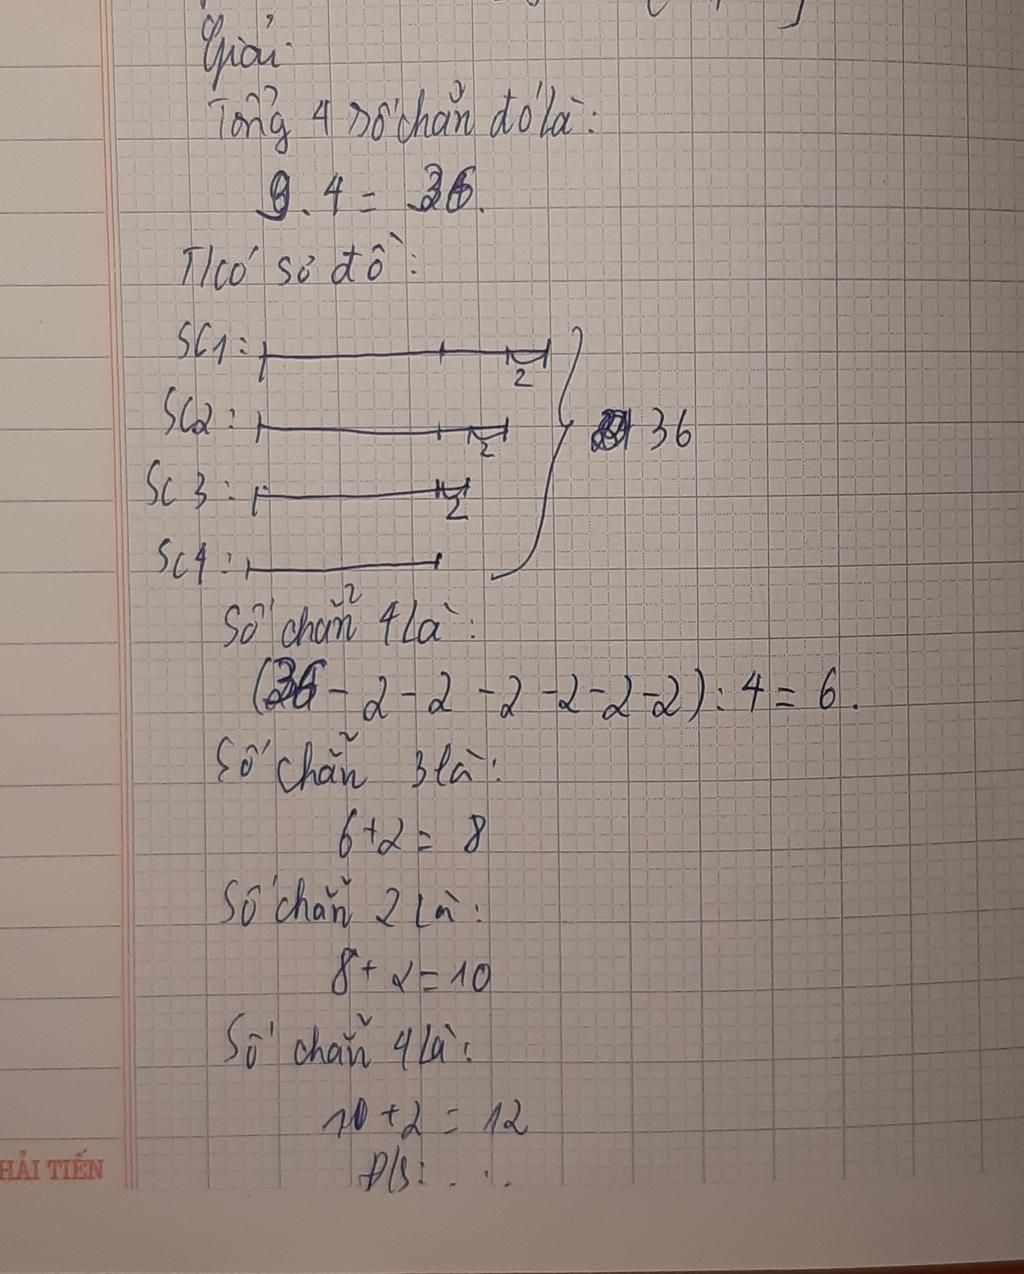 Giải:
Tổng 4 số chẵn đó là:
9.4 = 36.
T/có sơ đồ:
SC1:
2
SC2:
2
36
SC3:
2
SC4:
Số chẵn 4 là:
(36 - 2 - 2 - 2 - 2 - 2 - 2) : 4 = 6.
Số chẵn 3 là:
6+2 = 8
Số chẵn 2 là:
8+2=10
Số chẵn 4 là:
10+2 = 12
Đ/S: . . .
HẢI TIẾN